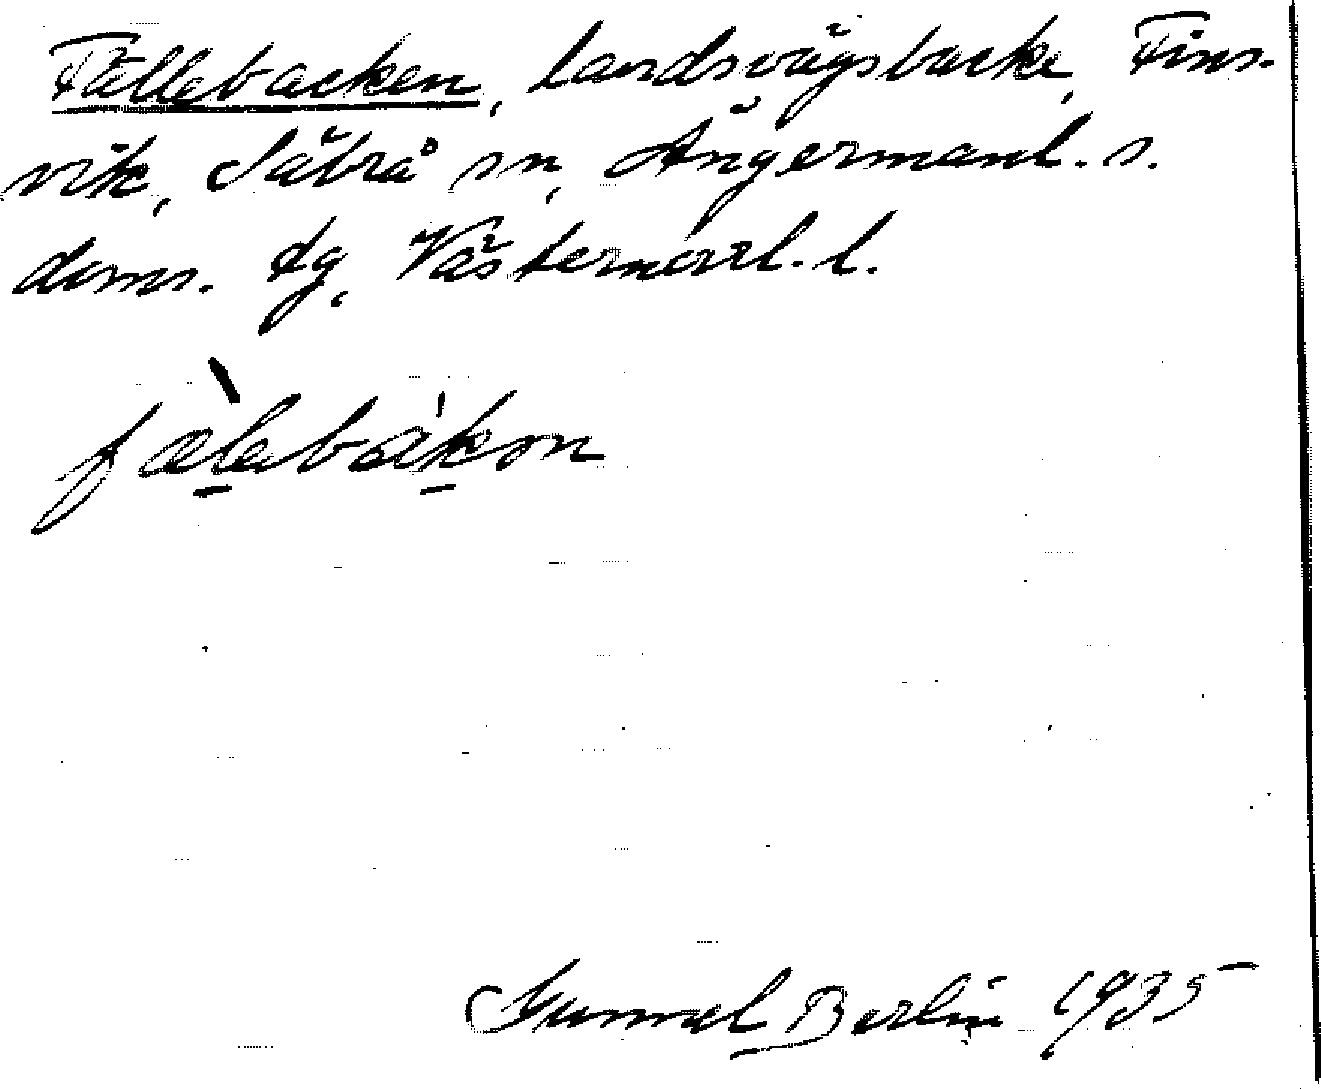 Fällebacken, landsvägsbacke, Fins-
vik, Säbrå sn, Ångermanl. s.
doms. tg, Västernorrl. l.
fæ̀lebákən
Gunnel Berlin 1935